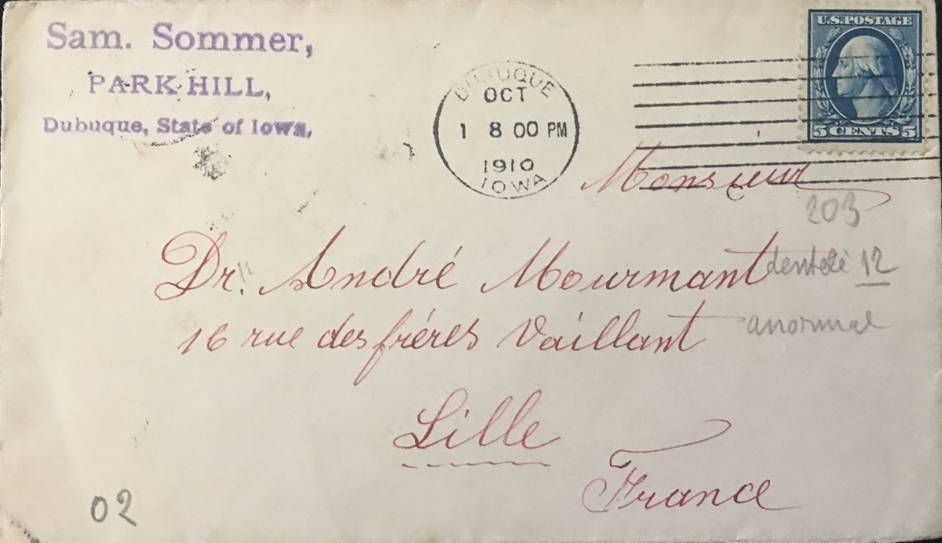 Sam. Sommer,
PARK HILL,
Dubuque, State of Iowa,
DUBUQUE
OCT
1 8 00 PM
1910
IOWA
U.S. POSTAGE
5 CENTS 5
Monsieur
203
Dr. André Mourmant
dentelé 12
16 rue des fréres Vaillant
anormal
Lille
France
02